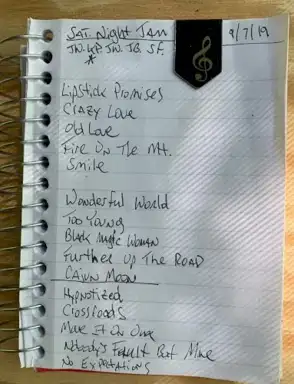 SAT. Night JAM
9/7/19
JW. KP. JW. JB. SF.
*
Lipstick Promises
CRAZY Love
Old Love
Fire On The Mt.
Smile
Wonderful World
Too Young
Black Magic Woman
Further Up The ROAD
CAJUN MOON
Hypnotized
Crossroads
Make It On One
Nobody's Fault But Mine
No EXPECTATIONS